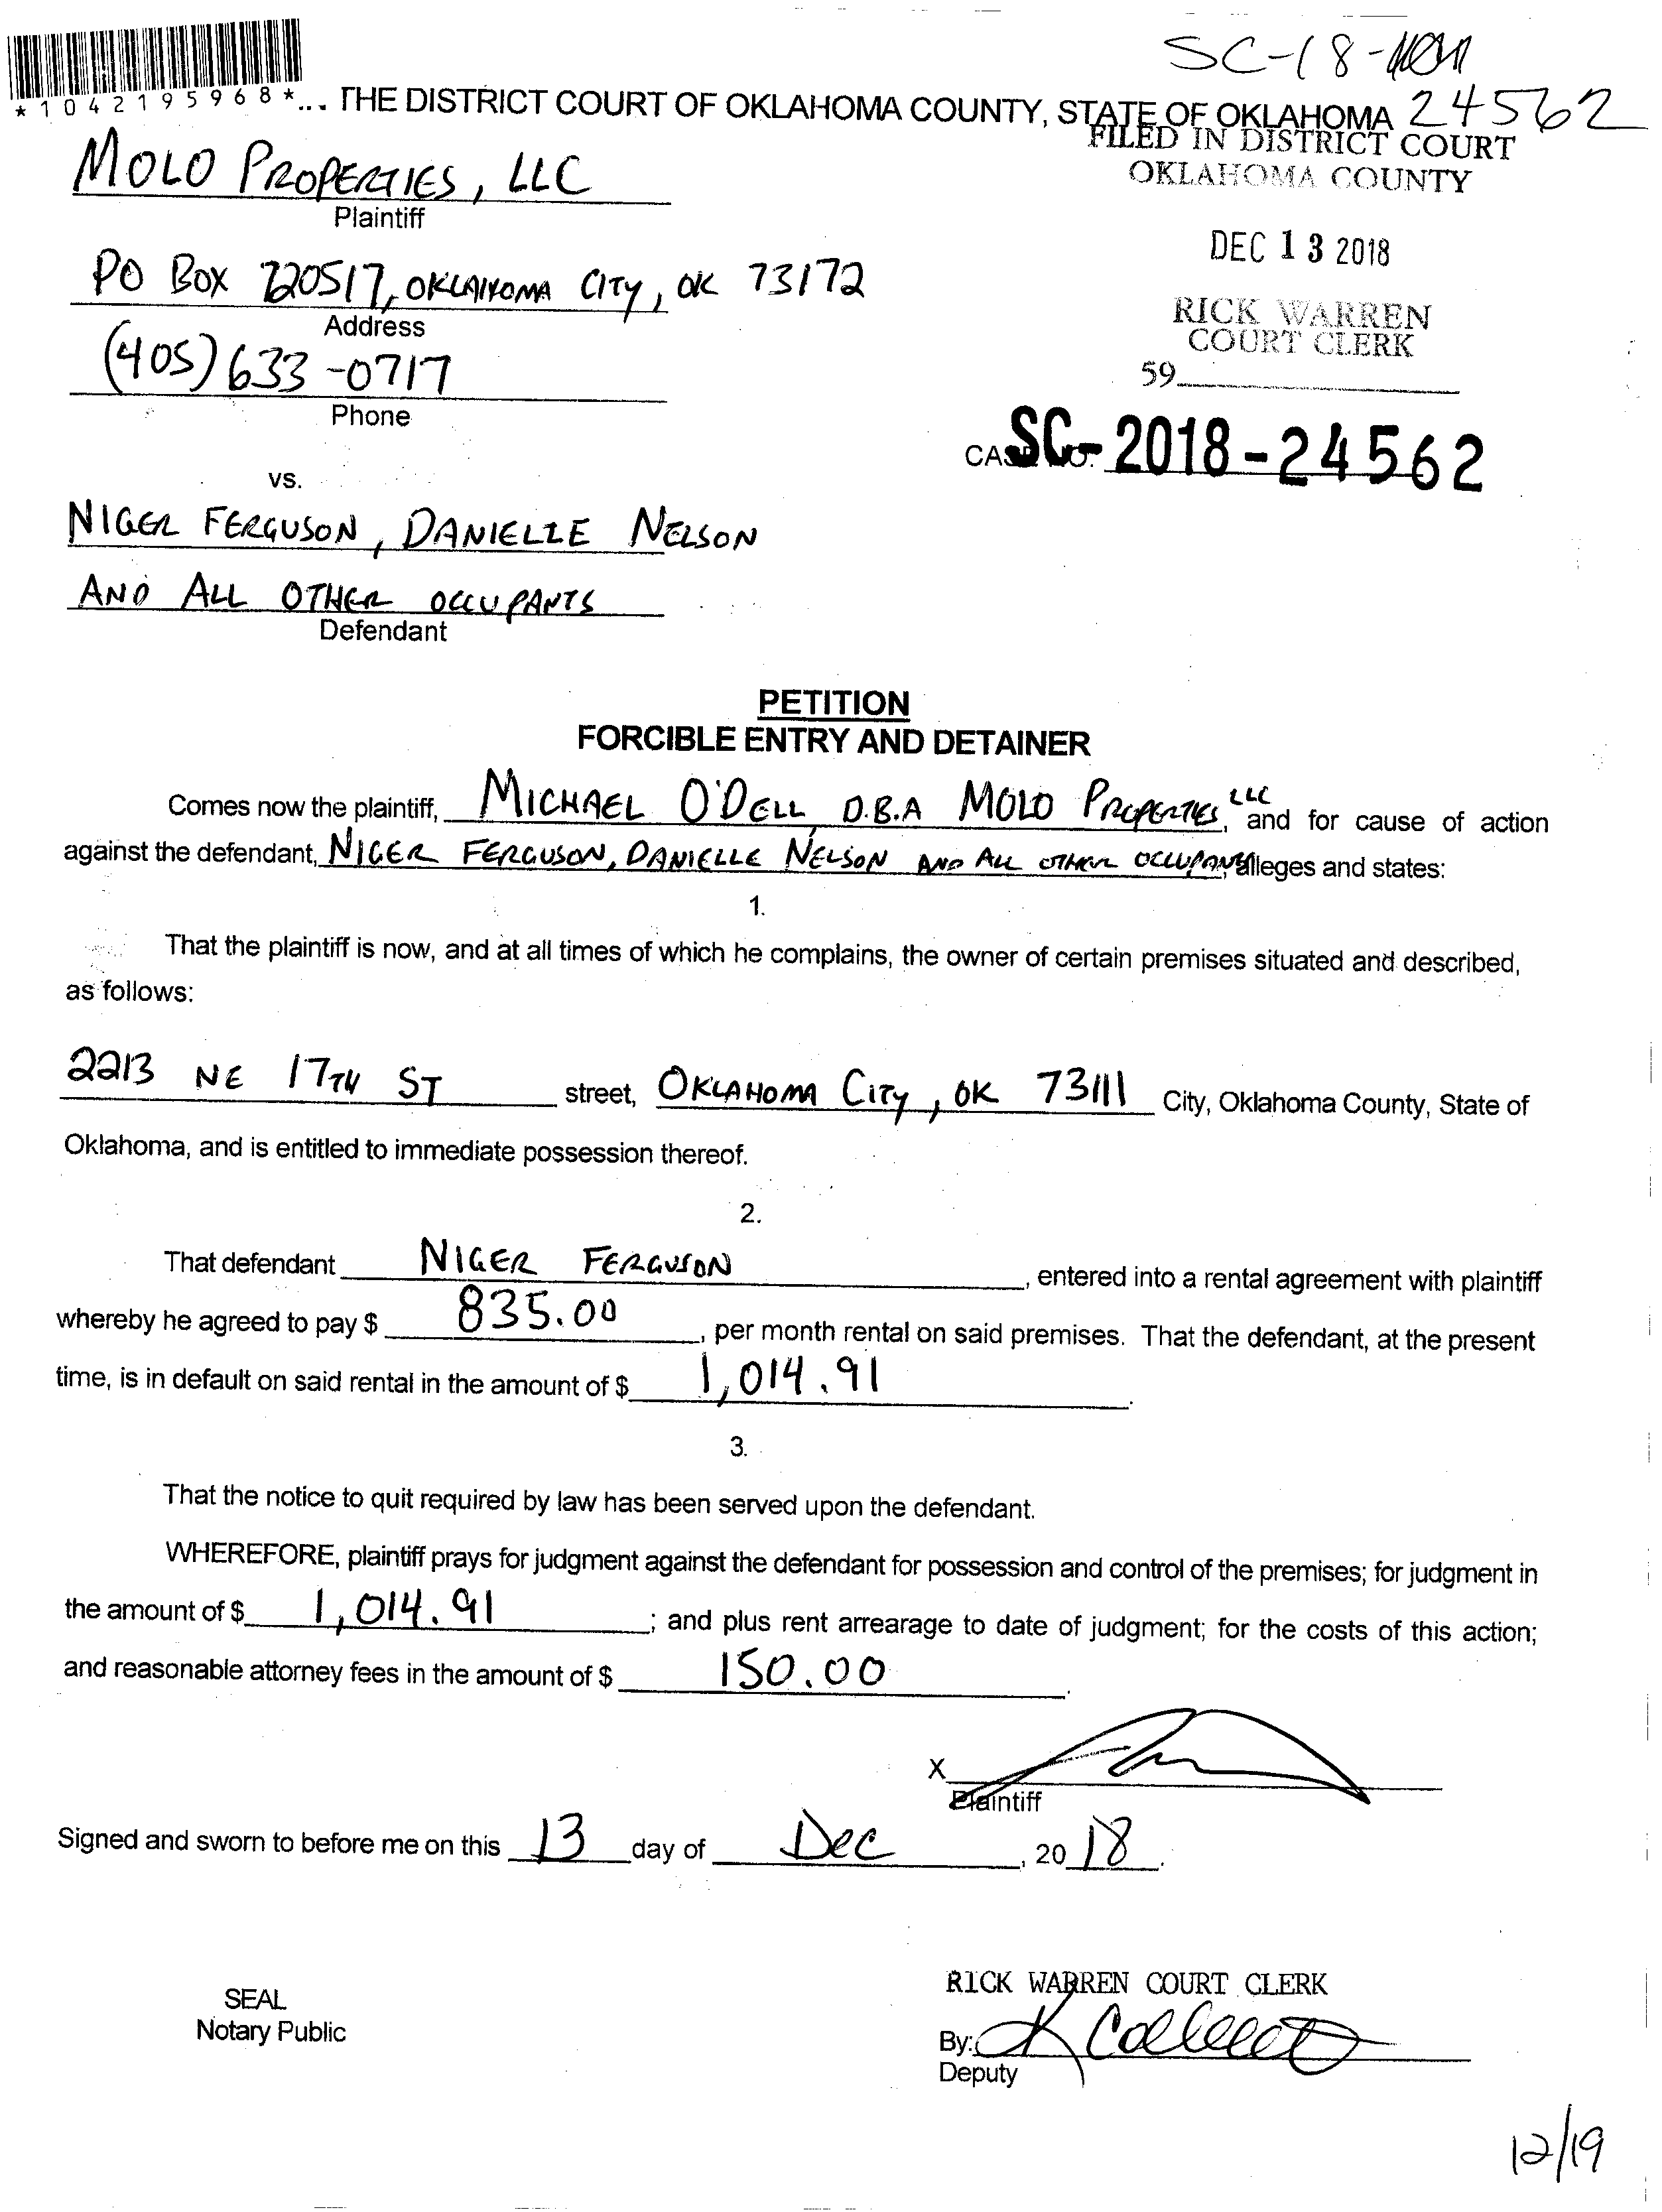 SC-18-
*1042195968*... THE DISTRICT COURT OF OKLAHOMA COUNTY, STATE OF OKLAHOMA 24562
FILED IN DISTRICT COURT
OKLAHOMA COUNTY
MOLO PROPERTIES, LLC
Plaintiff
DEC 13 2018
PO BOX 720517, OKLAHOMA CITY, OK 73172
Address
RICK WARREN
COURT CLERK
(405) 633-0717
59
Phone
CASE NO. SC-2018-24562
vs.
NIGER FERGUSON, DANIELLE NELSON
AND ALL OTHER OCCUPANTS
Defendant
PETITION
FORCIBLE ENTRY AND DETAINER
Comes now the plaintiff, MICHAEL O'DELL D.B.A MOLO PROPERTIES, LLC and for cause of action
against the defendant, NIGER FERGUSON, DANIELLE NELSON AND ALL OTHER OCCUPANTS, alleges and states:
1.
That the plaintiff is now, and at all times of which he complains, the owner of certain premises situated and described,
as follows:
2213 NE 17TH ST street, OKLAHOMA CITY, OK 73111 City, Oklahoma County, State of
Oklahoma, and is entitled to immediate possession thereof.
2.
That defendant NIGER FERGUSON, entered into a rental agreement with plaintiff
whereby he agreed to pay $ 835.00, per month rental on said premises. That the defendant, at the present
time, is in default on said rental in the amount of $ 1,014.91.
3.
That the notice to quit required by law has been served upon the defendant.
WHEREFORE, plaintiff prays for judgment against the defendant for possession and control of the premises; for judgment in
the amount of $ 1,014.91; and plus rent arrearage to date of judgment; for the costs of this action;
and reasonable attorney fees in the amount of $ 150.00.
X
Plaintiff
Signed and sworn to before me on this 13 day of Dec, 2018.
SEAL
Notary Public
RICK WARREN COURT CLERK
By: K
Deputy
12/19